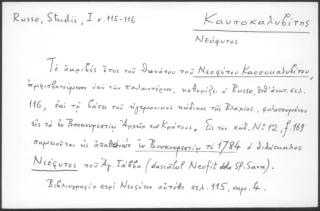 Russo, Studii, I p.115-116
Καυσοκαλυβίτης
Νεόφυτος
Τὸ ἀκριβὲς ἔτος τοῦ θανάτου τοῦ Νεοφύτου Καυσοκαλυβίτου,
ἀμφισβητούμενον ὑπὸ τῶν παλαιοτέρων, καθορίζει ὁ Russo, ἔνθ' ἀνωτ. σελ.
116, ἐπὶ τῇ βάσει τοῦ ἡγεμονικοῦ κώδικος τῆς Βλαχίας, φυλασσομένου
εἰς τὰ ἐν Βουκουρεστίῳ Ἀρχεῖα τοῦ Κράτους. Εἰς τὸν κωδ. Νο 12, f. 169
σημειοῦται ὡς ἀποθανὼν ἐν Βουκουρεστίῳ τὸ 1784 ὁ διδάσκαλος
Νεόφυτος τοῦ Ἁγ. Σάββα (dascălul Neofit dela Sf. Sava).
Βιβλιογραφία περὶ Νεοφύτου αὐτόθι σελ. 115, σημ. 4.